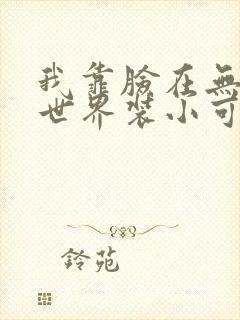 我靠臉在無
世界裝小可
鈴苑